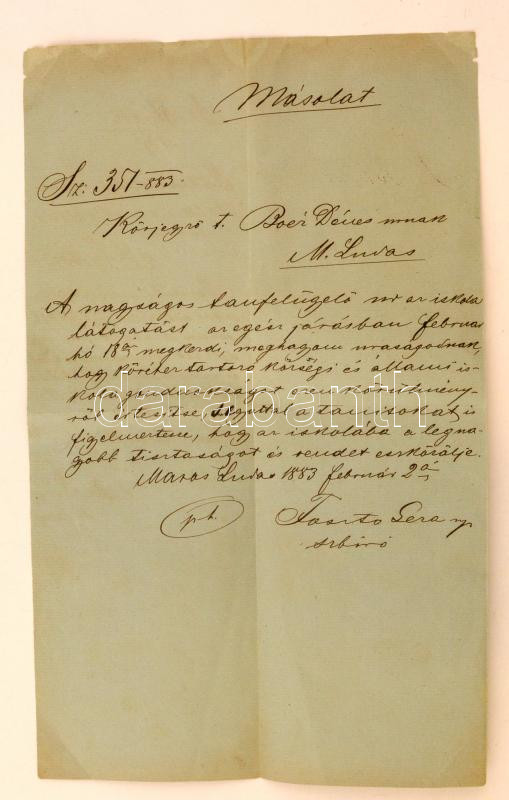 Másolat
Sz: 351-883.
Körjegyző t. Boér Dénes urnak
M. Ludas
A nagságos tanfelügelő ur az iskola
látogatást az egész járásban február
hó 18án megkezdi, meghagyom uraságodnak,
hogy köréhez tartozó községi és állami is-
kola gondnokságot ezen körülmény-
ről értesitse egyuttal a tanitsokat is
figyelmeztesse, hogy az iskolába a legna-
gyobb tisztaságot és rendet eszközölje.
Maros Ludas 1883 február 2án
ph.
Géza
szbiró
darabanth